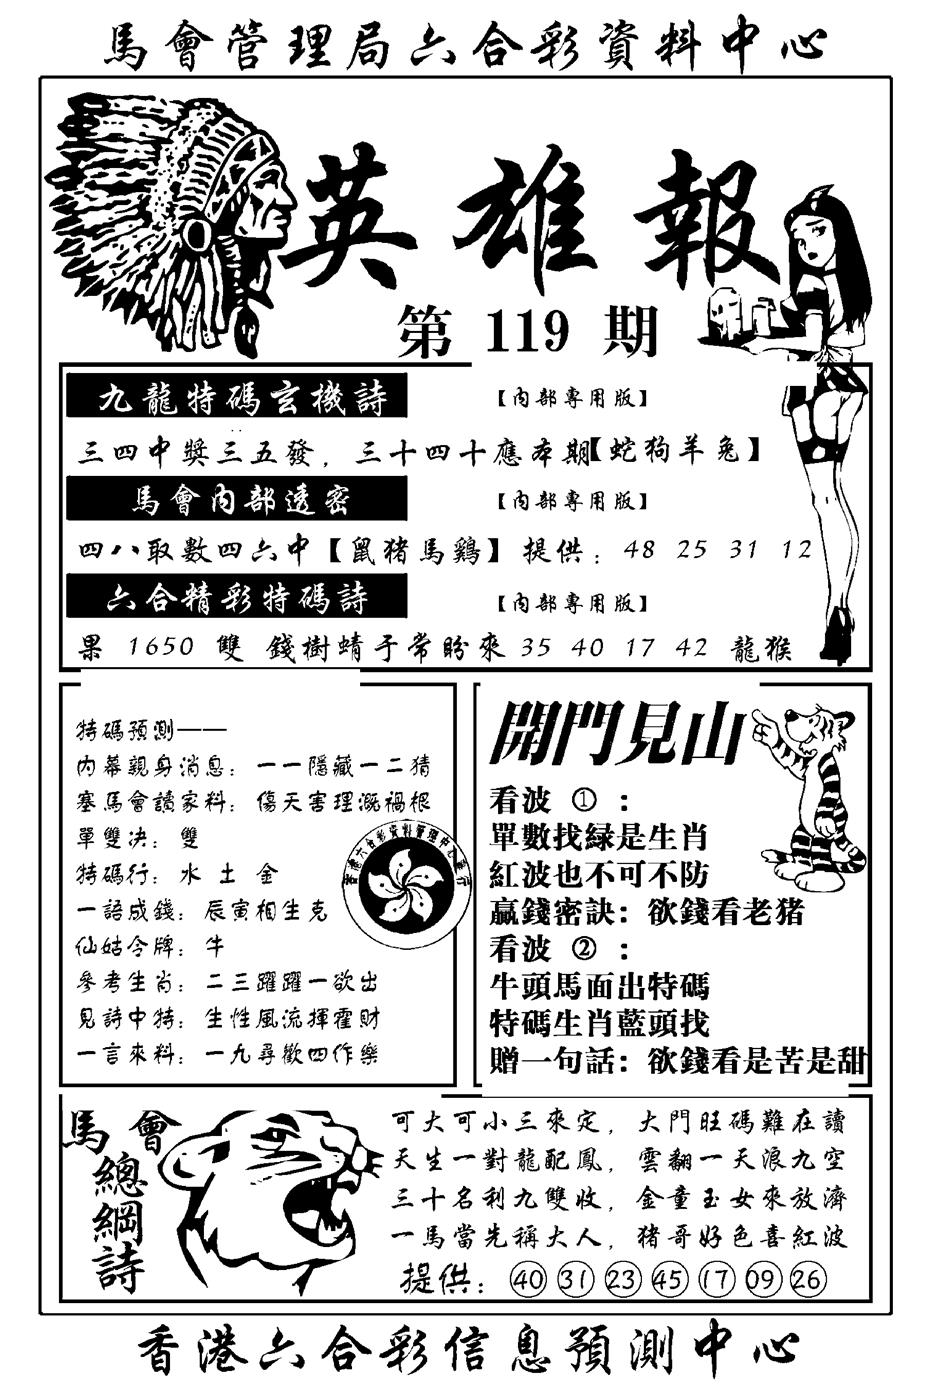 馬會管理局六合彩資料中心
英雄報
第 119 期
九龍特碼玄機詩 【内部專用版】
三四中獎三五發，三十四十應本期【蛇狗羊兔】
馬會内部透密 【内部專用版】
四八取數四六中【鼠猪馬鷄】提供：48 25 31 12
六合精彩特碼詩 【内部專用版】
果 1650 雙 錢樹蜻于常盼來 35 40 17 42 龍猴
特碼預測——
内幕親身消息：一一隱藏一二猜
塞馬會讀家料：傷天害理溉禍根
單雙决：雙
特碼行：水 土 金
一語成錢：辰寅相生克
仙姑令牌：牛
參考生肖：二三躍躍一欲出
見詩中特：生性風流揮霍財
一言來料：一九尋歡四作樂
香港六合彩資料管理中心發行
開門見山
看波 ①：
單數找緑是生肖
紅波也不可不防
贏錢密訣：欲錢看老猪
看波 ②：
牛頭馬面出特碼
特碼生肖藍頭找
贈一句話：欲錢看是苦是甜
馬會
總綱詩
可大可小三來定，大門旺碼難在讀
天生一對龍配鳳，雲翻一天浪九空
三十名利九雙收，金童玉女來放濟
一馬當先稱大人，猪哥好色喜紅波
提供：40 31 23 45 17 09 26
香港六合彩信息預測中心